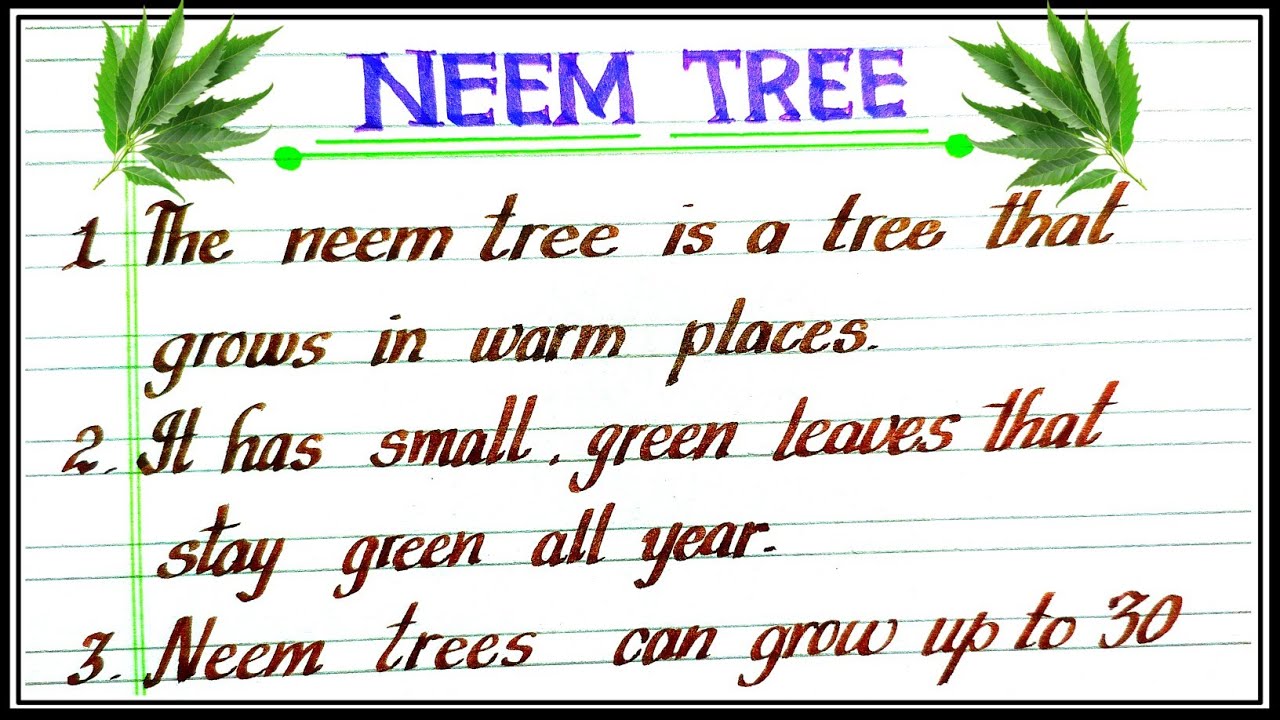 NEEM TREE
1 The neem tree is a tree that
grows in warm places.
2. It has small, green leaves that
stay green all year.
3. Neem trees can grow up to 30